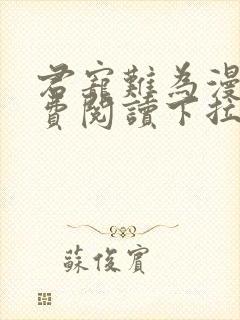 君寵難為漫
費閱讀下拉
蘇俊賓